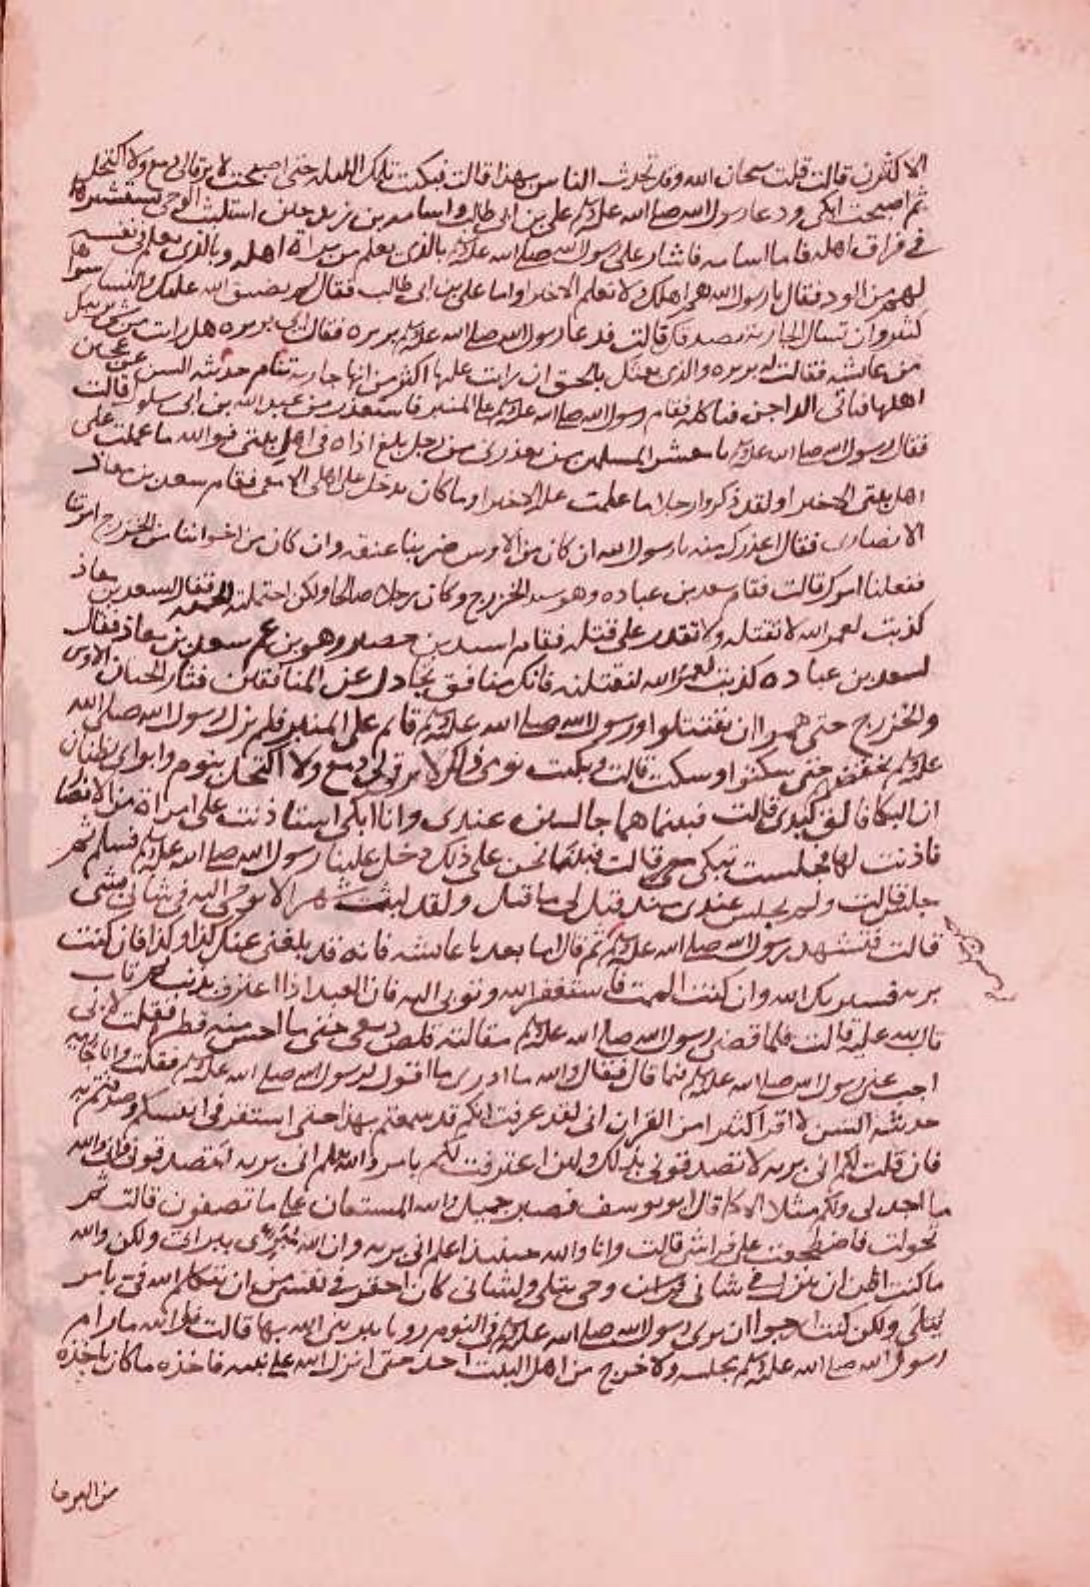 الا اكثرن قالت قلت سبحان الله وقد تحدث الناس بهذا قالت فبكيت تلك الليلة حتى اصبحت لا يرقا لي دمع ولا اكتحل
ثم اصبحت ابكي ودعا رسول الله صلى الله عليه وسلم علي بن ابي طالب واسامه بن زيد حين استلبث الوحي يستشيرهما
في فراق اهله فاما اسامه فاشار على رسول الله صلى الله عليه وسلم بالذي يعلم من براة اهله وبالذي يعلم في نفسه
لهم من الود فقال يا رسول الله هم اهلك ولا نعلم الا خيرا واما علي بن ابي طالب فقال لم يضيق الله عليك والنسا سواها
كثير وان تسال الجارية تصدقك قالت فدعا رسول الله صلى الله عليه وسلم بريره فقال اي بريره هل رايت من شي يريبك
من عايشه فقالت له بريره والذي بعثك بالحق ان رايت عليها اكثر من انها جارية تنام حديثه السن عن عجين
اهلها فياتي الداجن فياكله فقام رسول الله صلى الله عليه وسلم على المنبر فاستعذر من عبد الله بن ابي سلول قالت
فقال رسول الله صلى الله عليه وسلم يا معشر المسلمين من يعذرني من رجل بلغ اذاه في اهل بيتي فوالله ما علمت على
اهل بيتي الا خيرا ولقد ذكروا رجلا ما علمت عليه الا خيرا وما كان يدخل على اهلي الا معي فقام سعد بن معاذ
الانصاري فقال اعذرك منه يا رسول الله ان كان من الاوس ضربنا عنقه وان كان من اخواننا من الخزرج امرتنا
ففعلنا امرك قالت فقام سعد بن عباده وهو سيد الخزرج وكان رجلا صالحا ولكن احتملته الحميه فقال لسعد بن معاذ
كذبت لعمر الله لا تقتله ولا تقدر على قتله فقام اسيد بن حضير وهو بن عم سعد بن معاذ فقال
لسعد بن عباده كذبت لعمر الله لنقتلنه فانك منافق تجادل عن المنافقين فثار الحيان الاوس
والخزرج حتى هموا ان يقتتلوا ورسول الله صلى الله عليه وسلم قائم على المنبر فلم يزل رسول الله صلى الله
عليه وسلم يخفضهم حتى سكتوا وسكت قالت وبكيت يومي ذلك لا يرقا لي دمع ولا اكتحل بنوم وابواي يظنان
ان البكا فالق كبدي قالت فبينما هما جالسين عندي وانا ابكي استاذنت علي امراة من الانصا
فاذنت لها فجلست تبكي معي قالت فبينما نحن على ذلك دخل علينا رسول الله صلى الله عليه وسلم فسلم ثم
جلس قالت ولم يجلس عندي منذ قيل لي ما قيل ولقد لبثت شهرا لا يوحى اليه في شاني بشي
قالت فتشهد رسول الله صلى الله عليه وسلم ثم قال اما بعد يا عايشه فانه قد بلغني عنك كذا وكذا فان كنت
بريه فسيبريك الله وان كنت الممت فاستغفر الله وتوبي اليه فان العبد اذا اعترف بذنب ثم تاب
تاب الله عليه قالت فلما قضى رسول الله صلى الله عليه وسلم مقالته قلص دمعي حتى ما احس منه قطره فقلت لابي
اجب عني رسول الله صلى الله عليه وسلم فيما قال فقال والله ما ادري ما اقول لرسول الله صلى الله عليه وسلم فقلت وانا جاريه
حديثه السن لا اقرا كثيرا من القران اني لقد عرفت انكم قد سمعتم بهذا حتى استقر في انفسكم وصدقتم به
فان قلت لكم اني بريه لا تصدقوني بذلك ولين اعترفت لكم بامر والله يعلم اني بريه لتصدقوني فاني والله
ما اجد لي ولكم مثلا الا كما قال ابو يوسف فصبر جميل والله المستعان على ما تصفون قالت ثم
تحولت فاضطجعت على فراشي قالت وانا والله حينيذ اعلم اني بريه وان الله مبرئي ببراتي ولكن والله
ما كنت اظن ان ينزل في شاني قران وحي يتلى ولشاني كان احقر في نفسي من ان يتكلم الله في بامر
يتلى ولكن كنت ارجوا ان يرى رسول الله صلى الله عليه وسلم في النوم رويا يبريني الله بها قالت فوالله ما رام
رسول الله صلى الله عليه وسلم مجلسه ولا خرج من اهل البيت احد حتى انزل الله على نبيه فاخذه ما كان ياخذه
من البرحا